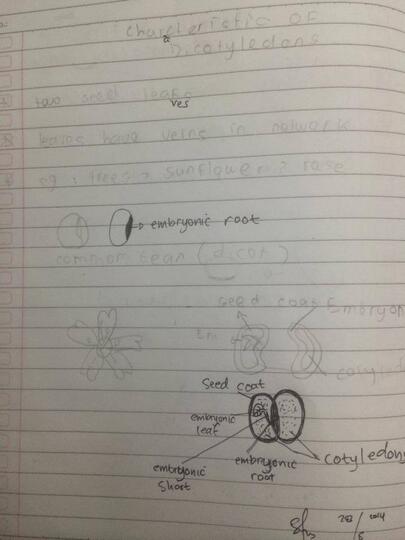 Charcteristic OF
a
Dicotyledons
two seed leafs
ves
leaves have veins in network
eg : trees, sunflower, rose
embryonic root
common bean (dicot)
seed coat Embryon
Em
cotyled
Seed coat
embryonic
leaf
embryonic
Shoot
embryonic
root
Cotyledons